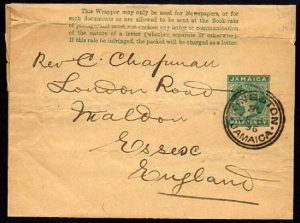 This Wrapper may only be used for Newspapers, or for
such documents as are allowed to be sent at the Book-rate
of postage and must not enclose any letter or communication
of the nature of a letter (whether separate or otherwise).
If this rule be infringed, the packet will be charged as a letter.
Rev C. Chapman
London Road
Maldon
Essex
England
JAMAICA
HALFPENNY
KINGSTON
JAMAICA